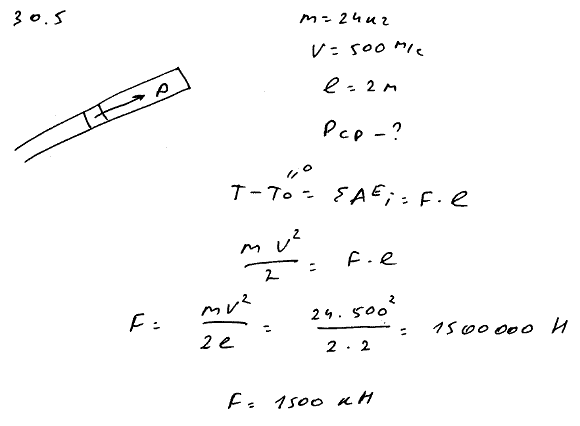 30.5
m = 24 кг
V = 500 м/с
ℓ = 2 м
P
Pср - ?
T - T₀ = ΣAᴱᵢ = F · ℓ
"0
mV²/2 = F · ℓ
F = mV²/2ℓ = 24 · 500²/2 · 2 = 1500000 Н
F = 1500 кН